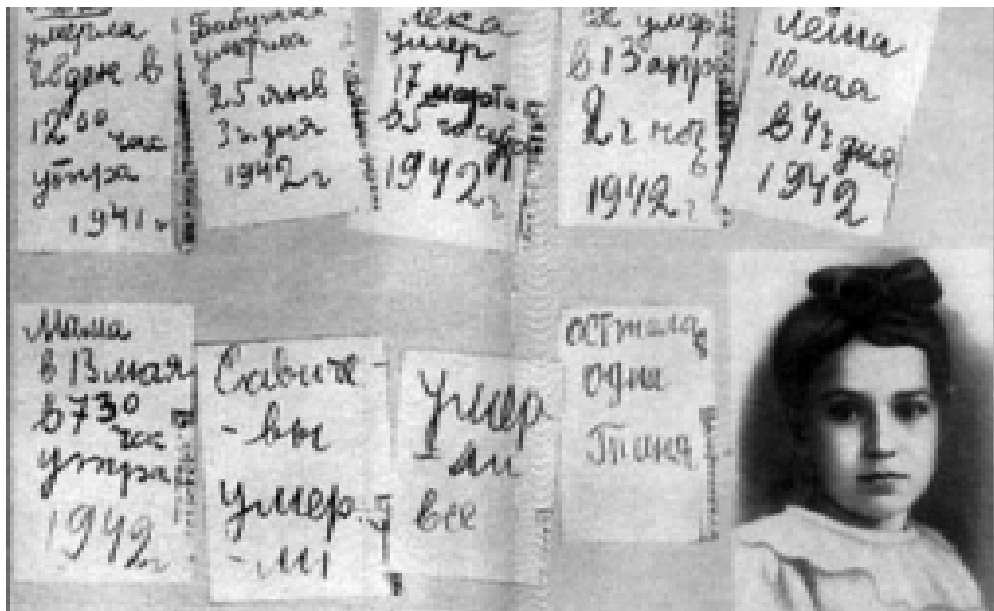 умерла
28 ден в
12 00 час
утра
1941 г
Бабушка
умерла
25 янв
3 ч дня
1942 г
Лека
умер
17 марта
в 5 часутр
1942 г
умер
в 13 апр
2 ч ноч
1942 г
Лёша
10 мая
в 4 ч дня
1942
Мама
в 13 мая
в 730
час
утра
1942 г
Савиче
-вы
умер
-ли
Умер
ли
все
осталас
одна
Таня